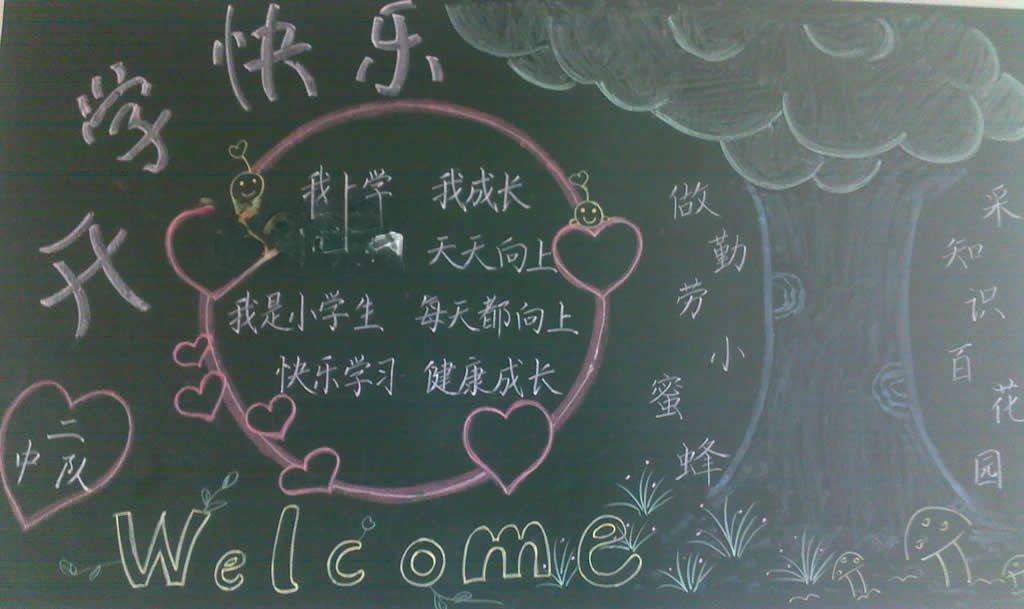 开学快乐
我上学 我成长
天天向上
我是小学生 每天都向上
快乐学习 健康成长
做勤劳小蜜蜂
采知识百花园
二
中队
Welcome